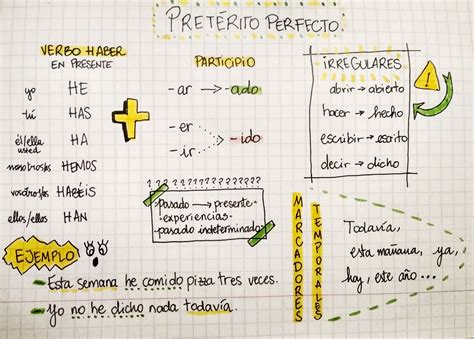 PRETÉRITO PERFECTO
VERBO HABER
EN PRESENTE
yo HE
tú HAS
él/ella
usted HA
nosotros/as HEMOS
vosotros/as HABÉIS
ellos/ellas HAN
+
PARTICIPIO
-ar → -ado
-er
-ir → -ido
IRREGULARES
!
abrir → abierto
hacer → hecho
escribir → escrito
decir → dicho
? ? ? ? ? ? ? ? ? ? ? ? ? ? ? ?
Pasado → presente
-experiencias-
-pasado indeterminado
MARCADORES
TEMPORALES
Todavía,
esta mañana, ya,
hoy, este año...
EJEMPLO
- Esta semana he comido pizza tres veces.
- Yo no he dicho nada todavía.